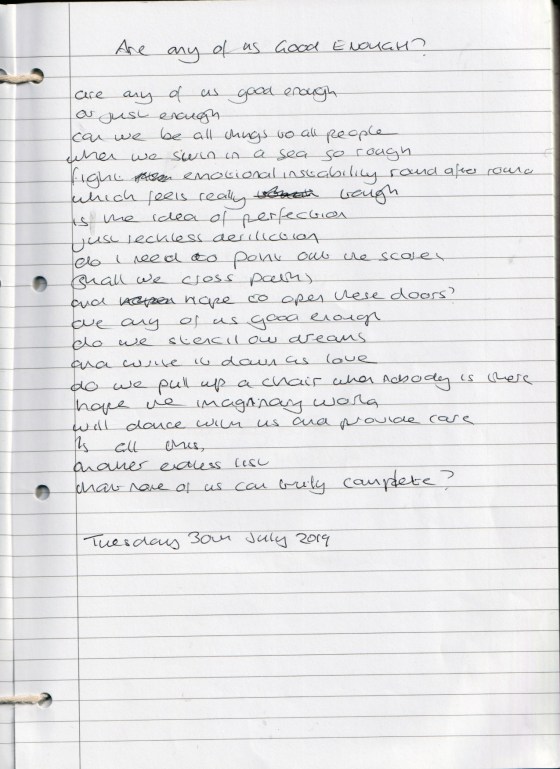 Are any of us Good Enough?
are any of us good enough
or just enough
can we be all things to all people
when we swim in a sea so rough
fight emotional instability round after round
which feels really tough
is the idea of perfection
just reckless deriliction
do I need to point out the scores
shall we cross paths
and hope to open these doors?
are any of us good enough
do we stencil our dreams
and write it down as love
do we pull up a chair when nobody is there
hope the imaginary world
will dance with us and provide care
Is all this,
another endless list
that none of us can truly complete?
Tuesday 30th July 2019